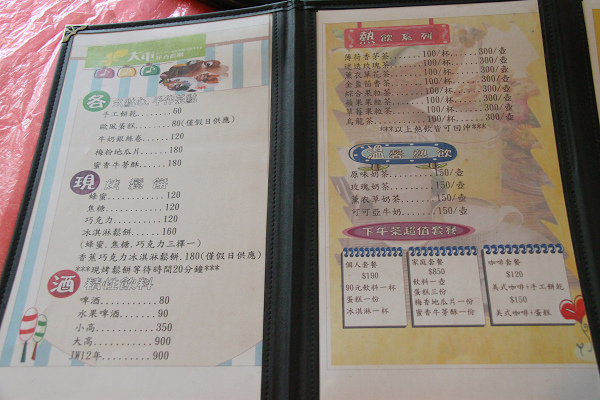 大中
各式點心 下午茶點
手工餅乾......60
歐風蛋糕......80(僅假日供應)
牛奶銀絲卷......120
梅粉地瓜片......180
蜜香牛蒡酥......180
現烤鬆餅
蜂蜜..........120
焦糖..........120
巧克力........120
冰淇淋鬆餅....160
(蜂蜜.焦糖.巧克力三擇一)
香蕉巧克力冰淇淋鬆餅.180(僅假日供應)
***現烤鬆餅等待時間20分鐘***
酒精性飲料
啤酒...........80
水果啤酒.......90
小高..........350
大高..........900
JW12年........900
熱飲系列
薄荷香茅茶......100/杯......300/壺
迷迭玫瑰茶......100/杯......300/壺
薰衣草花茶......100/杯......300/壺
金盞茴香茶......100/杯......300/壺
綜合果粒茶......100/杯......300/壺
蘋果果粒茶......100/杯......300/壺
草莓果粒茶......100/杯......300/壺
烏龍茶..........100/杯......300/壺
***以上熱飲皆可回沖***
溫製熱飲
原味奶茶........150/壺
玫瑰奶茶........150/壺
薰衣草奶茶......150/壺
可可亞牛奶......150/壺
下午茶超值套餐
個人套餐
$190
90元飲料一杯
蛋糕一份
冰淇淋一杯
家庭套餐
$850
飲料一壺
蛋糕三份
梅香地瓜片一份
蜜香牛蒡酥一份
咖啡套餐
$120
美式咖啡+手工餅乾
$150
美式咖啡+蛋糕